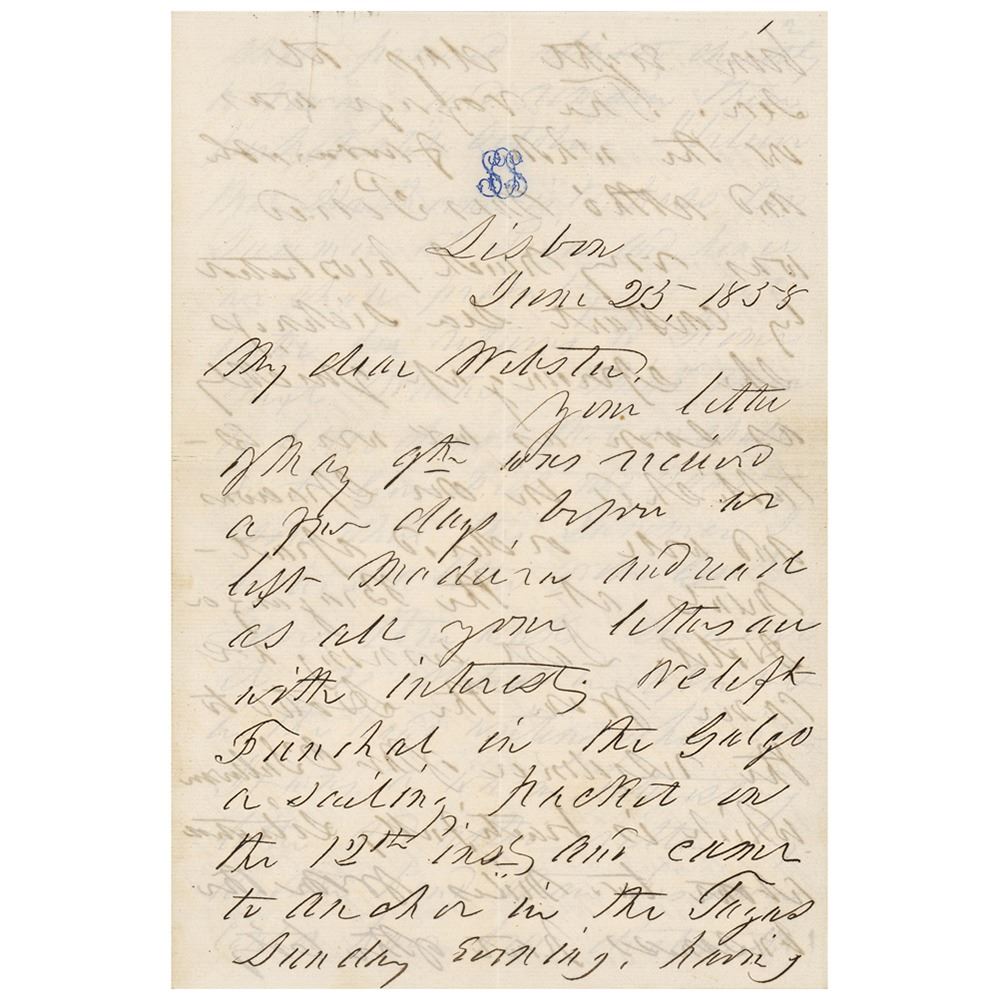 Lisbon
June 25, 1858
My dear Webster,
Your letter
of May 9th was received
a few days before we
left Madeira and read
as all your letters are
with interest, We left
Funchal in the Galgo
a sailing packet on
the 12th inst, and came
to anchor in the Tagus
Sunday Evening, having